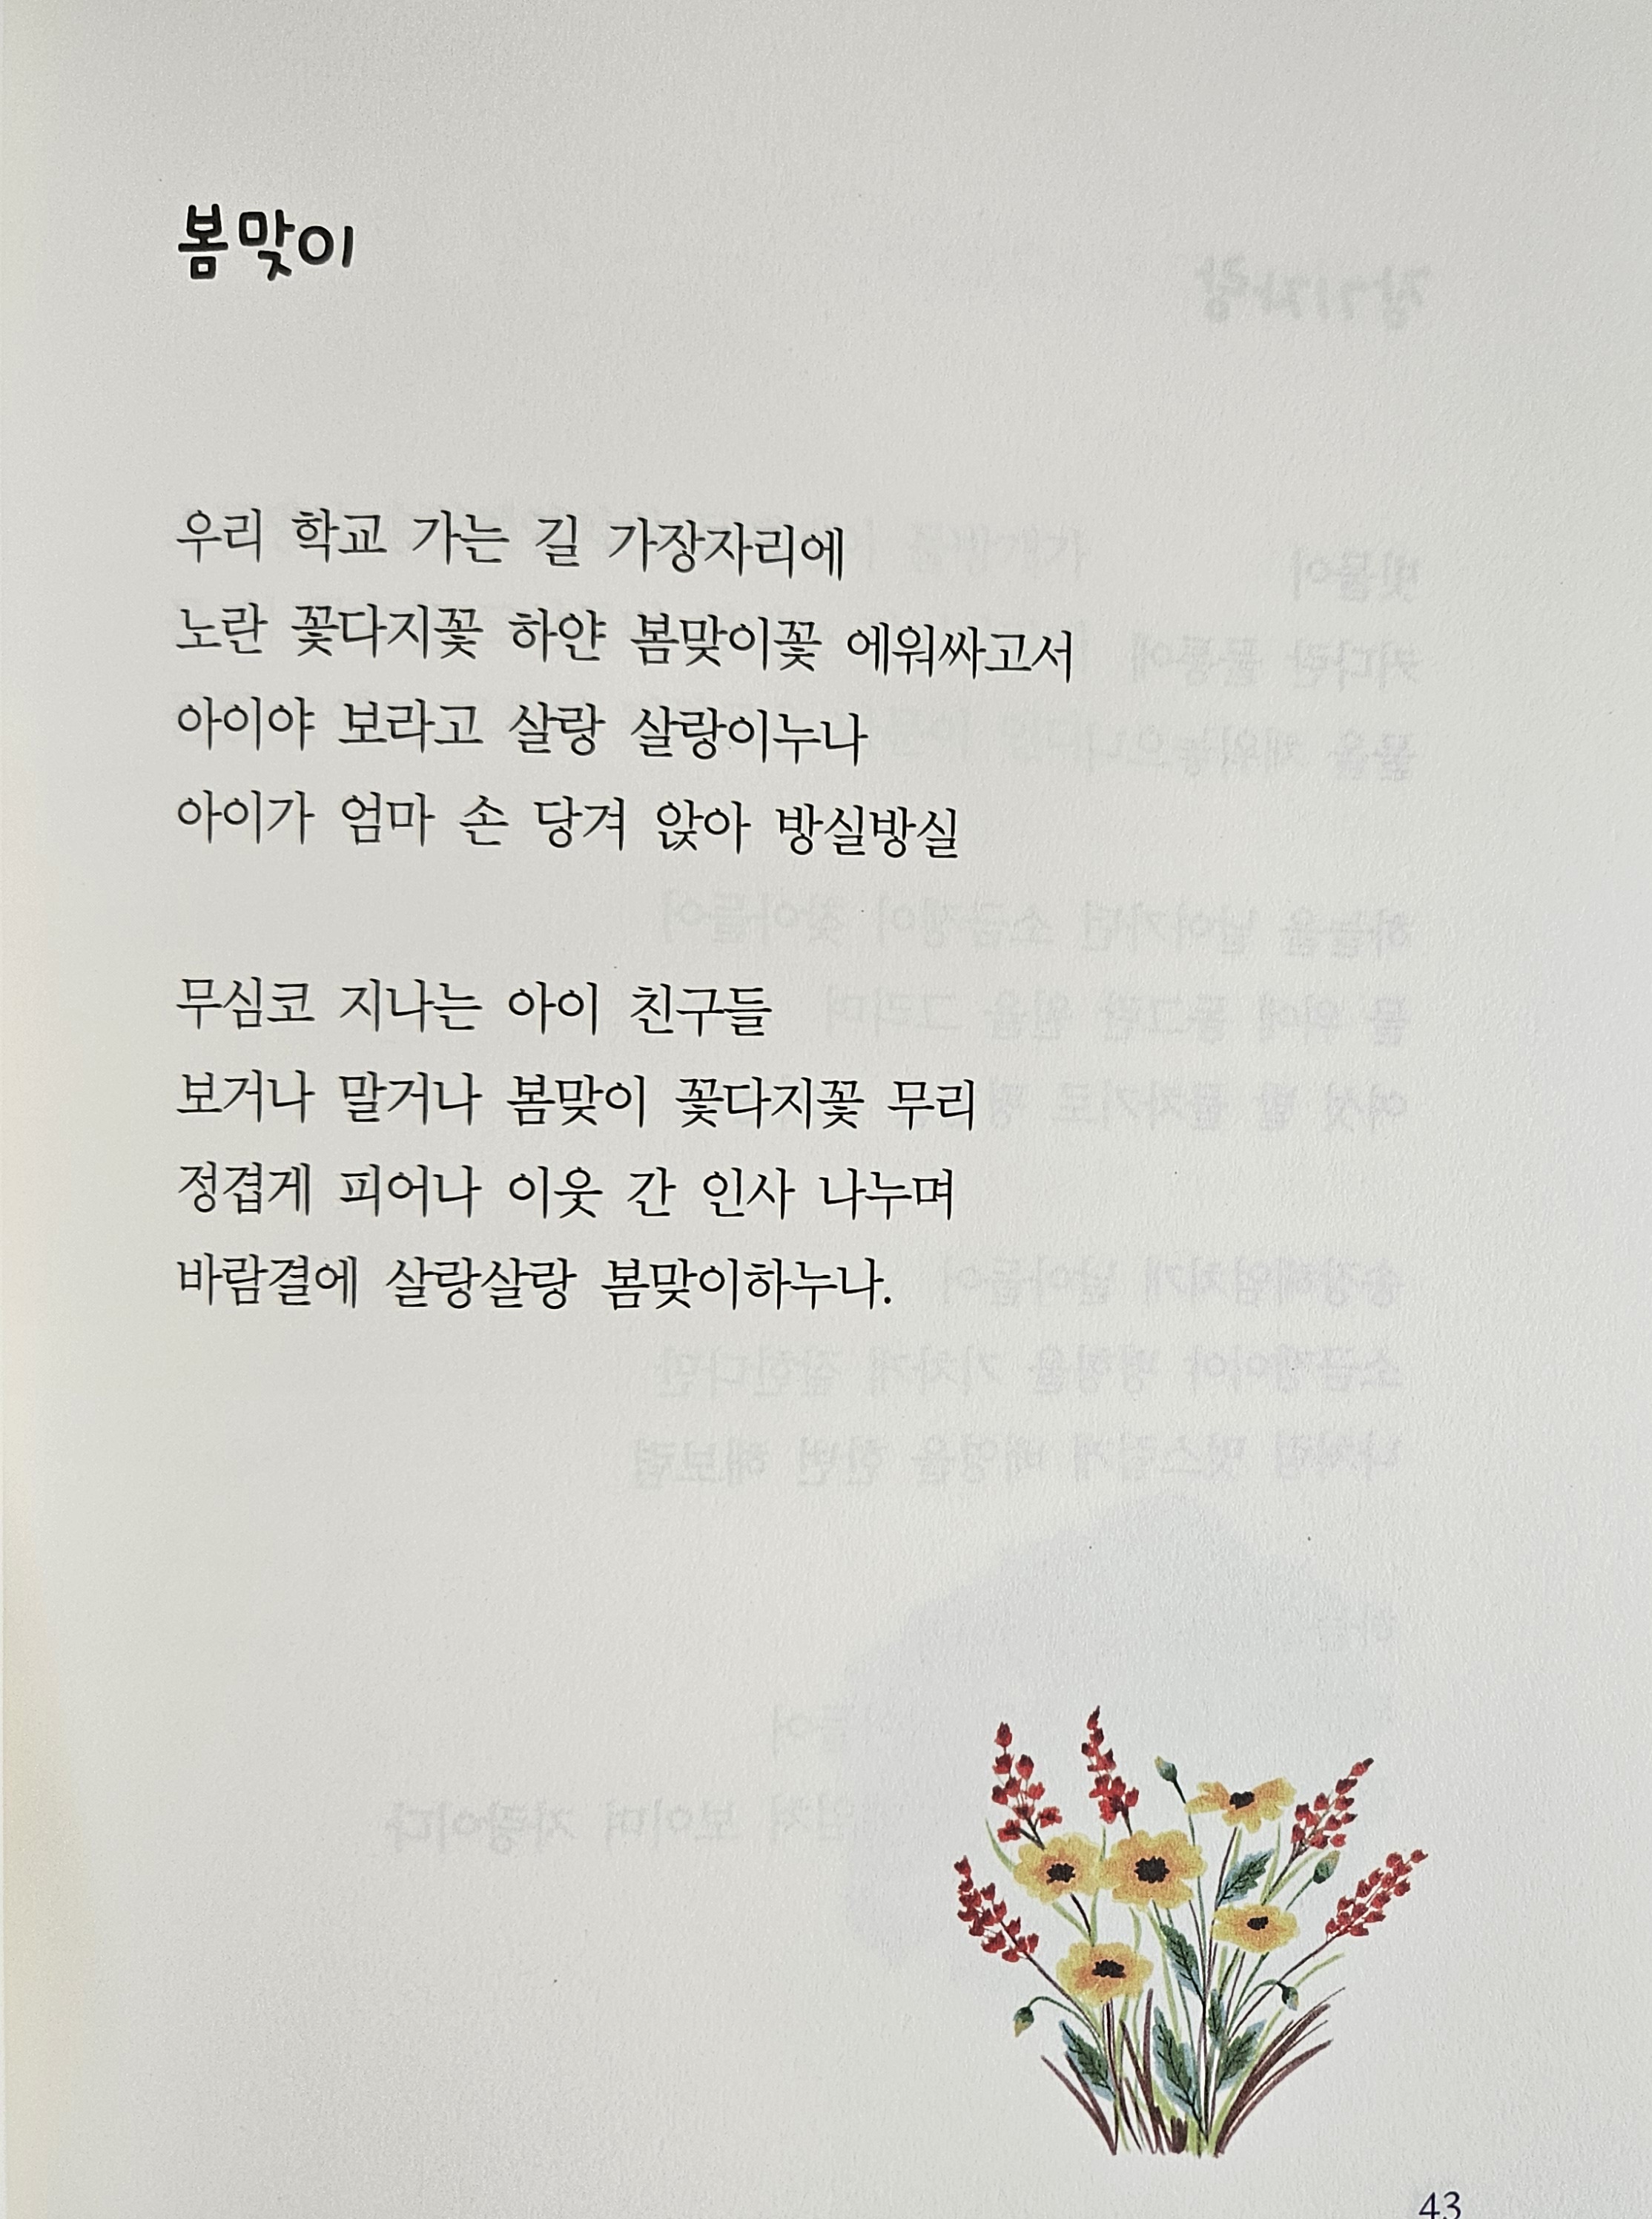 봄맞이
우리 학교 가는 길 가장자리에
노란 꽃다지꽃 하얀 봄맞이꽃 에워싸고서
아이야 보라고 살랑 살랑이누나
아이가 엄마 손 당겨 앉아 방실방실
무심코 지나는 아이 친구들
보거나 말거나 봄맞이 꽃다지꽃 무리
정겹게 피어나 이웃 간 인사 나누며
바람결에 살랑살랑 봄맞이하누나.
43